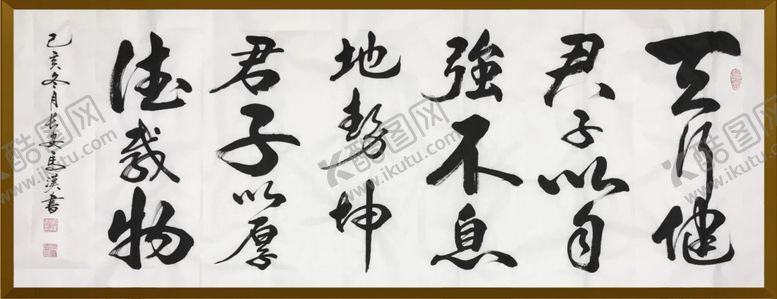 天行健
君子以自
強不息
地勢坤
君子以厚
德載物
己亥冬月長安馬漢書
K酷图网
www.ikutu.com
K酷图网
www.ikutu.com
K酷图网
www.ikutu.com